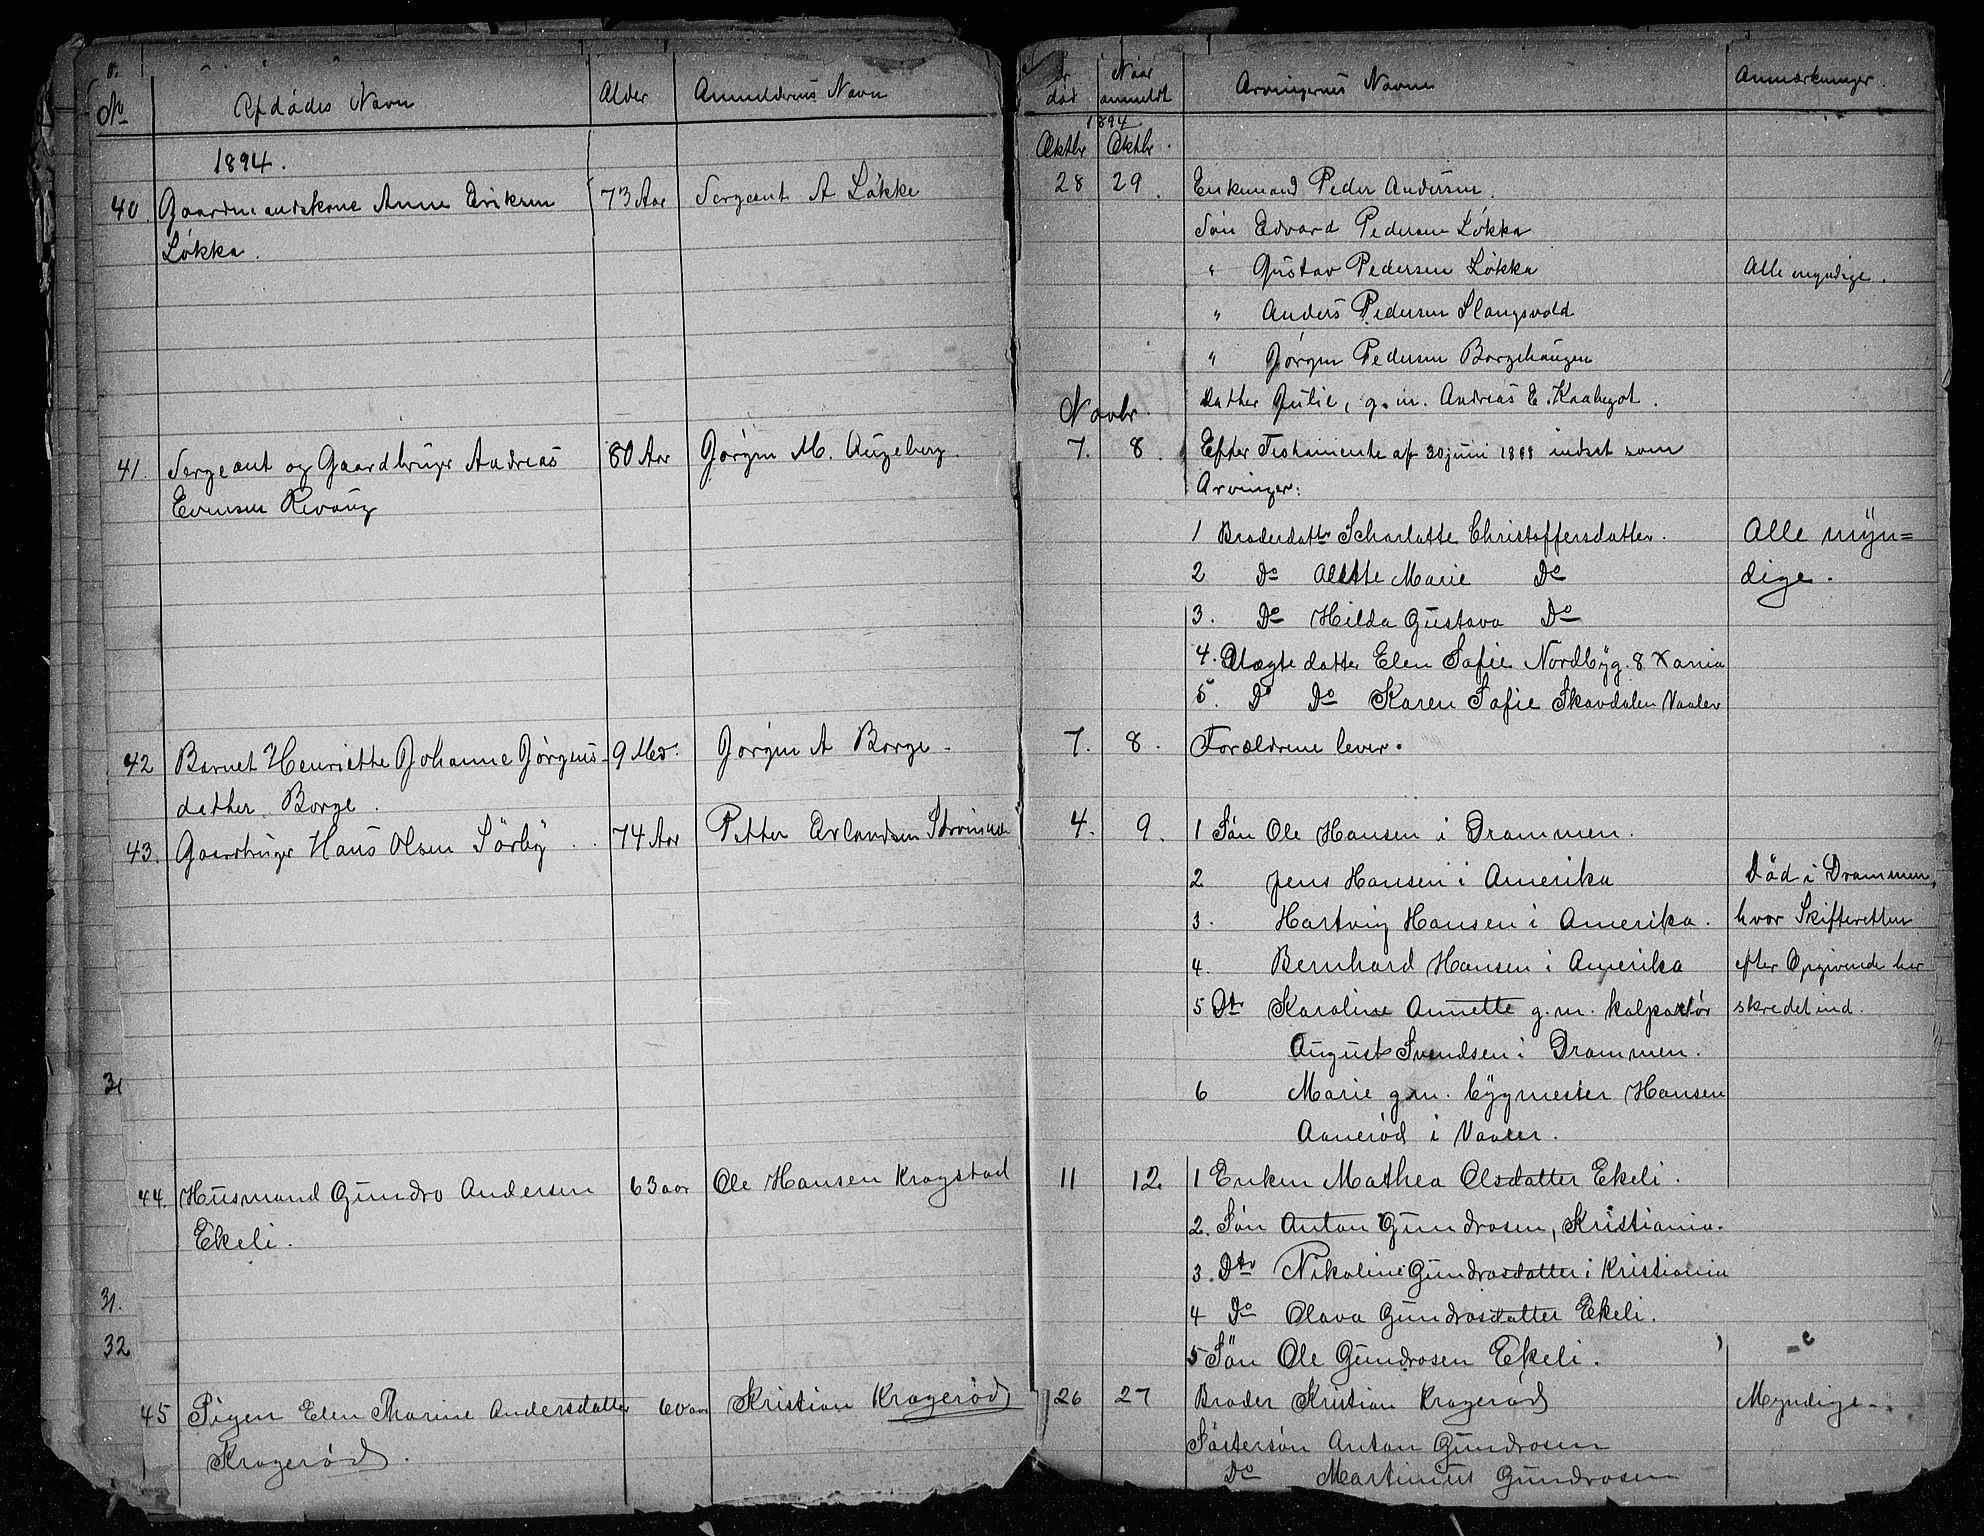 No
Afdødes Navn
Alder
Anmelderens Navn
1894.
40. Gaardmandskone Anne Eriksen
Løkka.
73 Aar
Sergeant A Løkke
41. Sergeant og Gaardbruger Andreas
Evensen Revoug
80 Aar
Jørgen M. Augeberg.
42 Barnet Henriette Johanne Jørgens-
datter Borge.
9 Md.
Jørgen A Borge
43. Gaardbruger Hans Olsen Sörby
74 Aar
Petter Arlandsen
31
44. Husmand Gundro Andersen
Ekeli.
63 aar
Ole Hansen Kragstad
31.
32
45 Pigen Elen Marine Andersdatter
Kragerød.
60 aar
Kristian Kragerød
død
Naar
anmeldt
Arvingernes Navne
Anmærkninger.
1894.
Oktbr
Oktbr.
28
29.
Enkemand Peder Andersen.
Søn Edvard Pedersen Løkka
" Gustav Pedersen Løkka
Alle myndige.
" Anders Pedersen Slangsvold
" Jørgen Pedersen Borgehaugen
Datter Julie, g.m. Andreas E. Kaabegot.
Novbr.
7.
8.
Efter Testamente af 30 juni 1888 indsat som
Arvinger:
1 Broderdattr Scharlatte Christoffersdatter.
Alle myn=
dige.
2 Do Alette Marie Do
3. Do Hilda Gustava Do
4. Slægte datter Elen Sofie Nordbyg. 8 Xania
5. Do Do Karen Sofie Skavdalen Vaaler
7.
8.
Forældrene lever.
4.
9.
1 Søn Ole Hansen i Drammen.
2 Jens Hansen i Amerika
3. Hartvig Hansen i Amerika.
4. Bernhard Hansen i Amerika
5 Dtr Karoline Annette g.m. kolpartør
August Svendsen i Drammen.
6 Marie g.m. bygmester Hansen
Aanerød i Vaaler.
Død i Drammen,
hvor Skifteretten
efter Opgivende har
skredet ind.
11
12.
1 Enken Mathea Olsdatter Ekeli.
2. Søn Anton Gundrosen, Kristiania.
3. Dtr Nikoline Gundrosdatter i Kristiania
4 Do Olava Gundrosdatter Ekeli.
5 Søn Ole Gundrosen Ekeli.
26
27
Broder Kristian Kragerød
Myndige.
Søstersøn Anton Gundrosen
Do Martinus Gundrosen